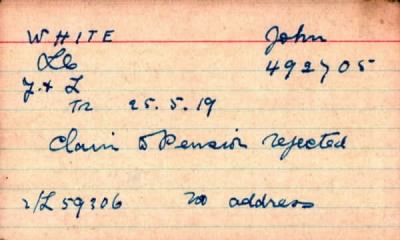 WHITE John
LC 492705
Y. & L
TR 25.5.19
Claim to Pension rejected
2/L 59306 no address